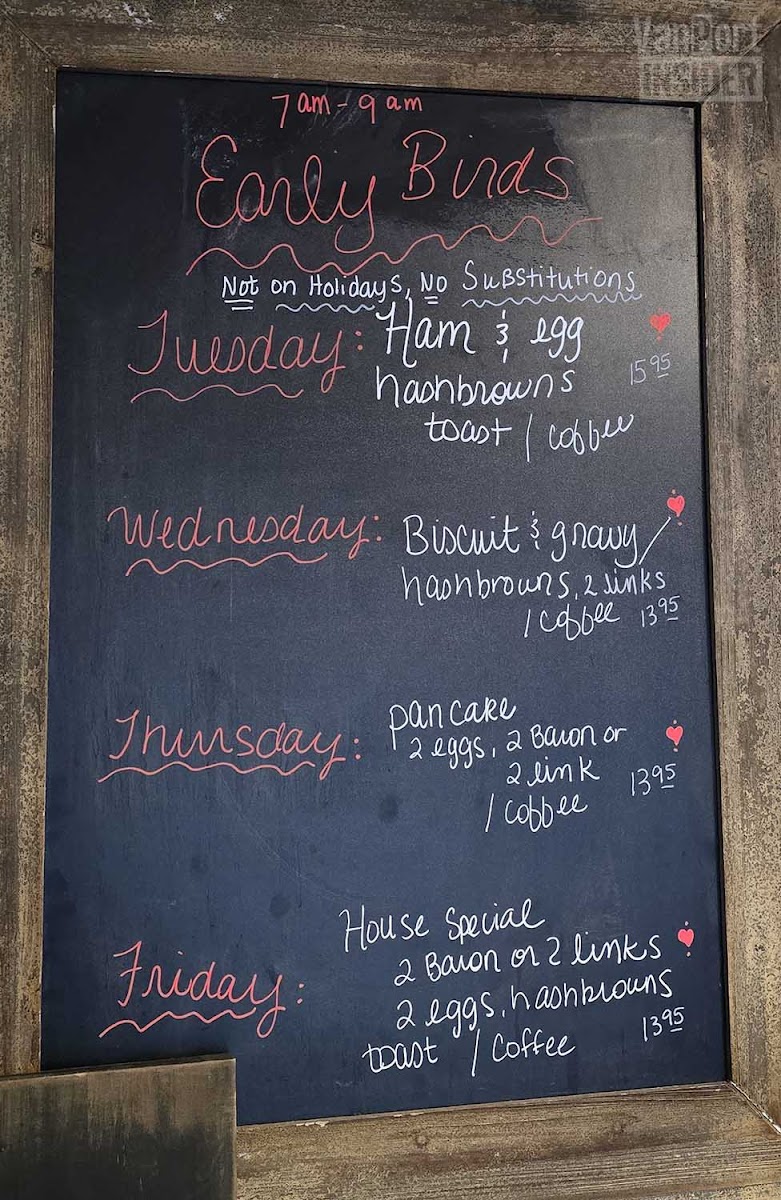 VanPort
INSIDER
7am - 9am
Early Birds
Not on Holidays, No Substitutions
Tuesday: Ham & egg
hashbrowns 15 95
toast / coffee
Wednesday: Biscuit & gravy /
hashbrowns, 2 links
/ coffee 13 95
Thursday: pancake
2 eggs, 2 Bacon or
2 link 13 95
/ coffee
House Special
2 Bacon or 2 links
Friday: 2 eggs, hashbrowns
toast / coffee 13 95